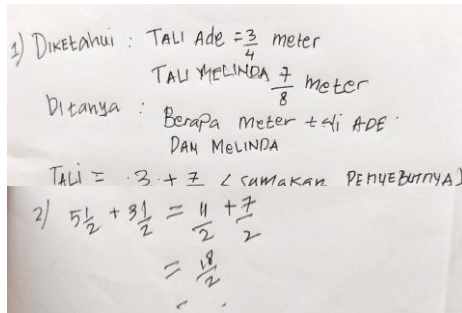 1) DIKETAHUI : TALI Ade = 3/4 meter
TALI MELINDA 7/8 meter
Ditanya : Berapa meter tali ADE
DAN MELINDA
TALI = 3 + 7 (samakan PENYEBUTNYA)
2) 5 1/2 + 3 1/2 = 11/2 + 7/2
= 18/2